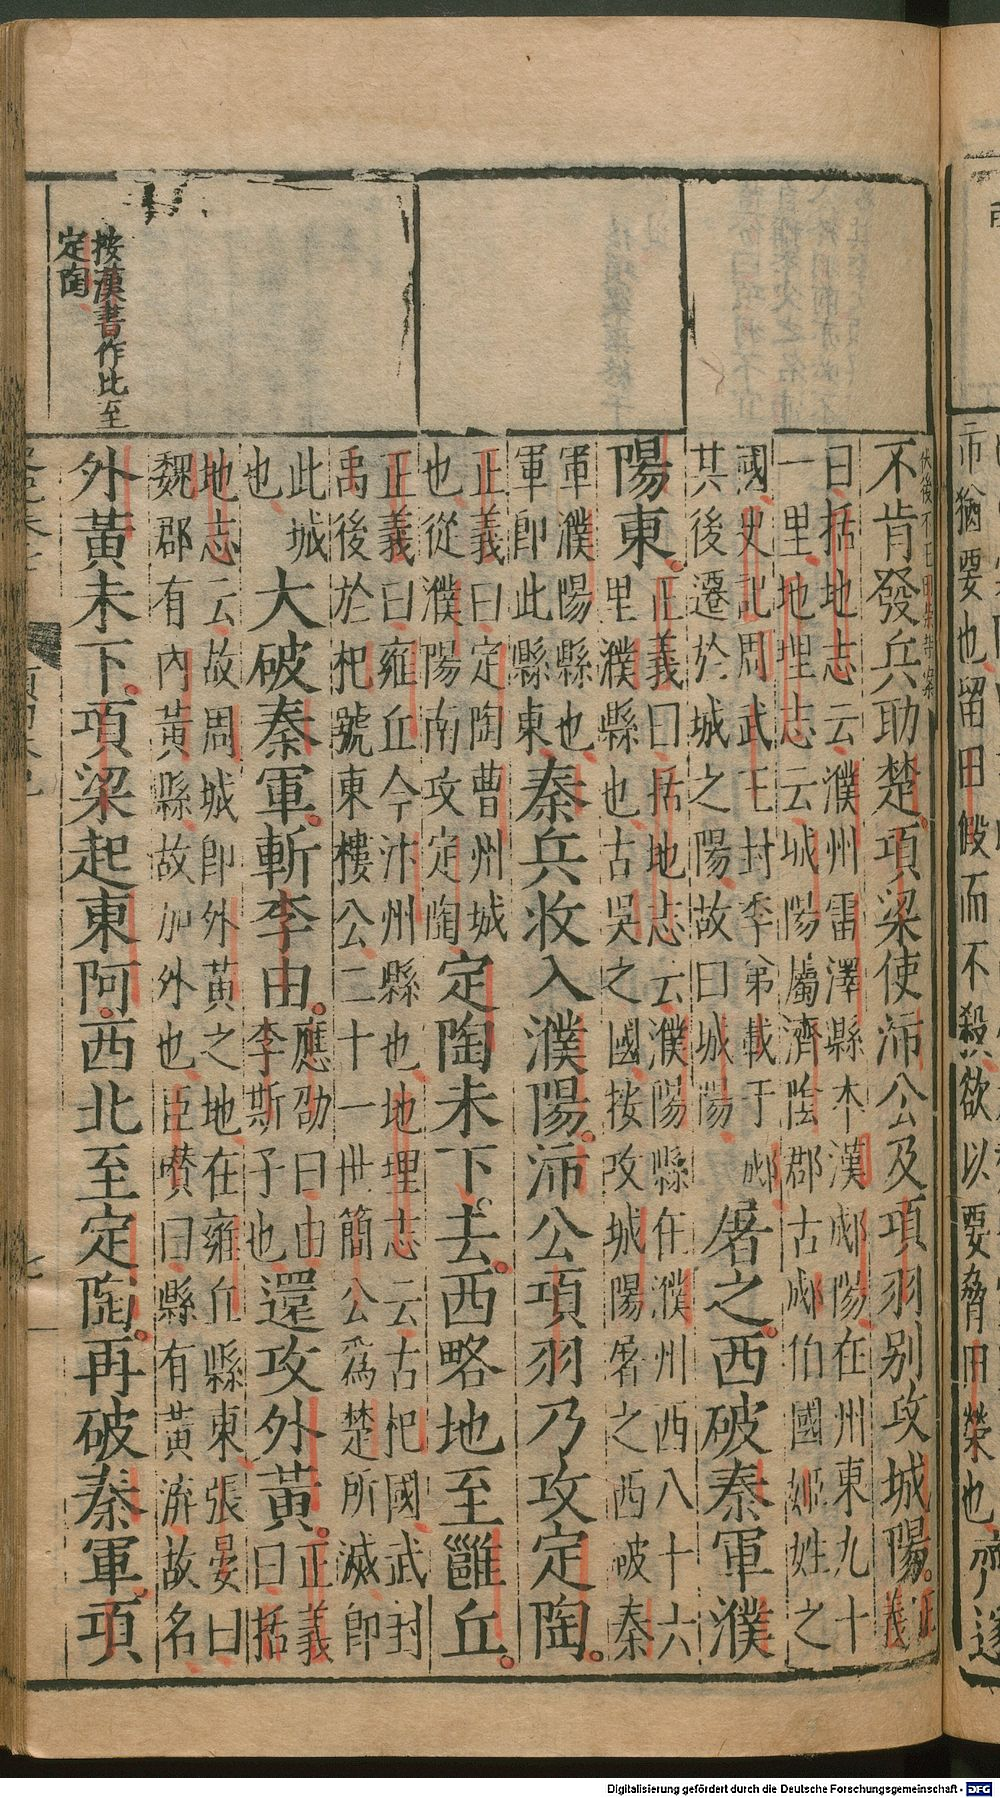 市猶要也留田假而不殺欲以要脅田榮也齊遂
不肯發兵助楚。項梁使沛公及項羽别攻城陽。正義
曰括地志云濮州雷澤縣本漢郕陽在州東九十
一里地理志云城陽屬濟陰郡古郕伯國姬姓之
國史記周武王封季弟載于郕其後遷於城之陽故曰城陽屠之。西破秦軍濮
陽東。正義曰括地志云濮陽縣在濮州西八十六
里濮縣也古吳之國按攻城陽屠之西破秦
軍濮陽縣也軍即此縣東秦兵收入濮陽。沛公項羽乃攻定陶。
正義曰定陶曹州城也從濮陽南攻定陶定陶未下。去。西略地至雝丘。
正義曰雍丘今汴州縣也地理志云古杞國武封
禹後於杞號東樓公二十一世簡公爲楚所滅即
此城也大破秦軍。斬李由。應劭曰由李斯子也還攻外黃。正義曰括
地志云故周城即外黃之地在雍丘縣東張晏曰
魏郡有內黃縣故加外也臣瓚曰縣有黃溝故名
外黃未下。項梁起東阿。西北至定陶。再破秦軍。項
按漢書作比至
定陶
Digitalisierung gefördert durch die Deutsche Forschungsgemeinschaft - DFG